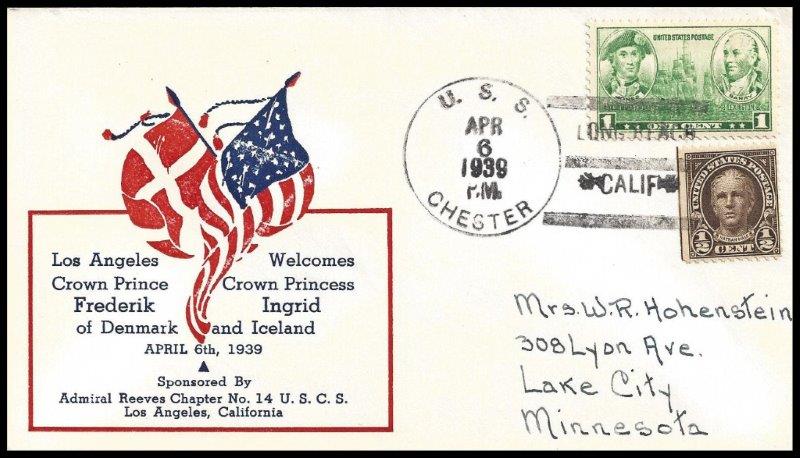 UNITED STATES POSTAGE
1 ONE CENT 1
U. S. S.
APR
6
1939
P.M.
CHESTER
LONG BEACH
CALIF
UNITED STATES POSTAGE
1/2 CENT 1/2
Los Angeles Welcomes
Crown Prince Crown Princess
Frederik Ingrid
of Denmark and Iceland
APRIL 6th, 1939
Sponsored By
Admiral Reeves Chapter No. 14 U. S. C. S.
Los Angeles, California
Mrs. W. R. Hohenstein
308 Lyon Ave.
Lake City
Minnesota